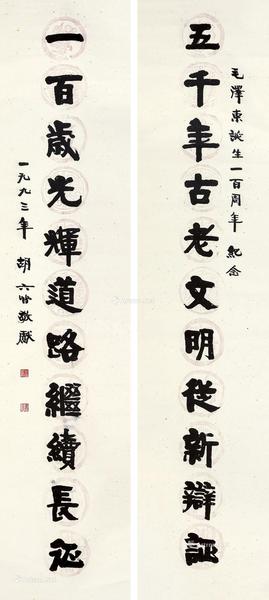 毛澤東誕生一百周年 紀念
五千年古老文明從新辯証
一百歲光輝道路繼續長征
一九九三年 胡六皆敬獻